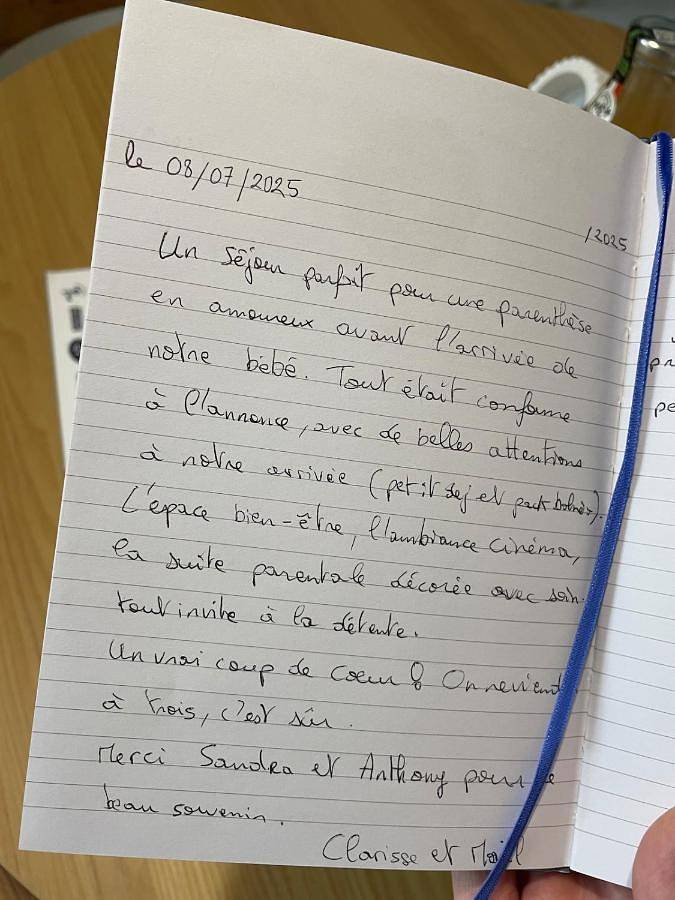 le 08/07/2025
/2025
Un séjour parfait pour une parenthèse
en amoureux avant l'arrivée de
notre bébé. Tout était conforme
à l'annonce, avec de belles attentions
à notre arrivée (petit dej et pack balnéo).
L'épace bien-être, l'ambiance cinéma,
la suite parentale décorée avec soin.
tout invite à la détente.
Un vrai coup de coeur ! On revient
à trois, c'est sûr.
Merci Sandra et Anthony pour le
beau souvenir.
Clarisse et
pr
pe